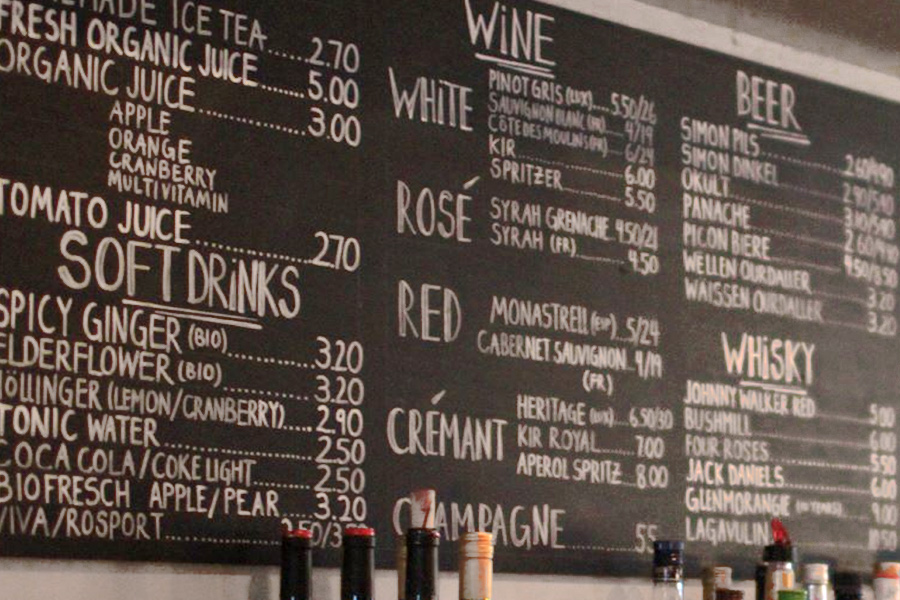 MADE ICE TEA.....2.70
FRESH ORGANIC JUICE.......5.00
ORGANIC JUICE...............3.00
APPLE
ORANGE
CRANBERRY
MULTIVITAMIN
TOMATO JUICE................2.70
SOFT DRINKS
SPICY GINGER (BIO)..............3.20
ELDERFLOWER (BIO)..............3.20
HÖLLINGER (LEMON/CRANBERRY)....2.90
TONIC WATER....................2.50
COCA COLA/COKE LIGHT.........2.50
BIOFRESCH APPLE/PEAR......3.20
VIVA/ROSPORT..............
WiNE
WHiTE
PINOT GRIS (LUX)....5.50/26
SAUVIGNON BLANC (FR)....4/19
CÔTE DES MOULINS (FR)....6/24
KIR..............6.00
SPRITZER..........5.50
ROSÉ
SYRAH GRENACHE..4.50/21
SYRAH (FR)........4.50
RED
MONASTRELL (ESP)..5/24
CABERNET SAUVIGNON..4/19
(FR)
CRÉMANT
HERITAGE (LUX)...6.50/30
KIR ROYAL......7.00
APEROL SPRITZ...8.00
CHAMPAGNE............55
BEER
SIMON PILS
SIMON DINKEL
OKULT
PANACHE
PICON BIERE
WELLEN OURDALLER 3.20
WAISSEN OURDALLER 3.20
WHiSKY
JOHNNY WALKER RED 5.00
BUSHMILL 6.00
FOUR ROSES 5.50
JACK DANIELS 6.00
GLENMORANGIE (10 YEARS) 9.00
LAGAVULIN